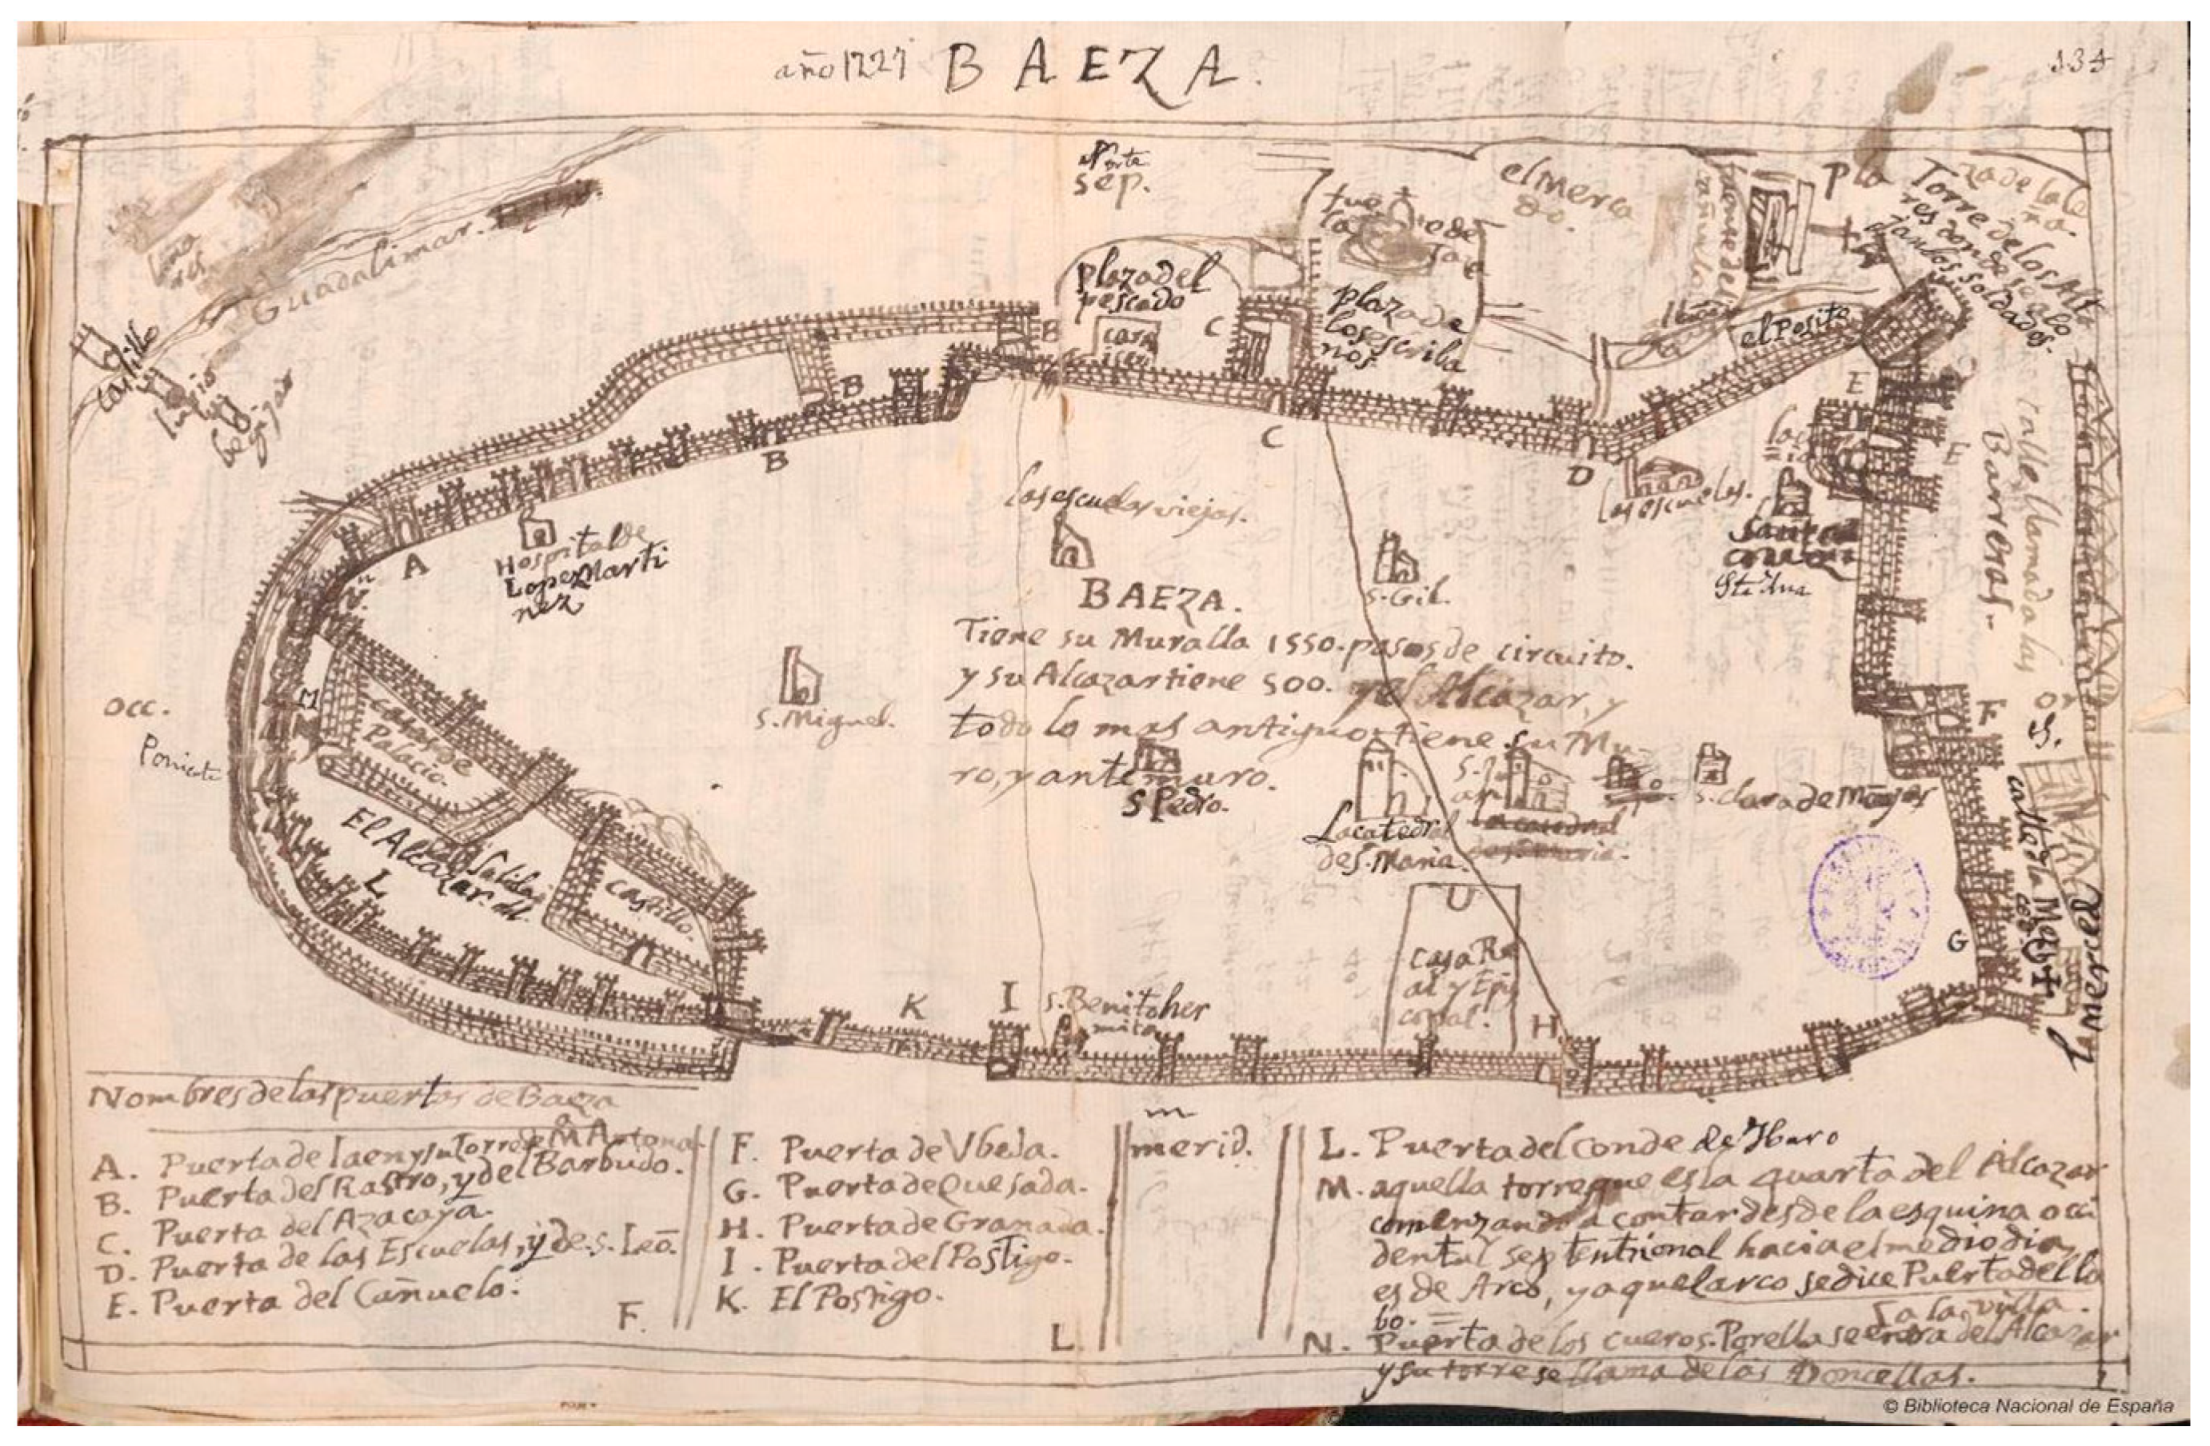 año 1227 BAEZA.
134
Norte
sep.
Guadalimar.
Castillo
lupio
begijar
plaza del
pescado
carni
B
C
plaza de
los escriba
nos
el Merca
do.
fuente del
cañuelo
Pla za de la le
ña.
Torre de los Alt
res donde se aelo
jan los soldados.
el Posito
E
E
calle llamada las
Barreras.
B
B
C
D
A
Hospital de
Lopez Marti
nez
las escuelas viejas.
las escuelas.
Santa
cruz
Sta Ana
S. Gil.
BAEZA.
Tiene su Muralla 1550. pasos de circuito.
y su Alcazar tiene 500. y el Alcázar, y
todo lo mas antiguo tiene su Mu-
ro, y antemuro.
S. Miguel.
S Pedro.
La catedral
de S. Maria.
S. Clara de Monjas
F
or
occ.
Poniente
M
casas de
Palacio.
El Alcazar
L
castillo.
casa Re
al y Epis
copal.
calle de la
la merced
G
K
I
S. Benito her
mita
H
Nombres de las puertas de Baeza
A. Puerta de Iaen y su Torre de Mª Antona
B. Puerta del Rastro, y del Barbudo.
C. Puerta del Azacaya.
D. Puerta de las Escuelas, y de S. Leō.
E. Puerta del Cañuelo.
F.
F. Puerta de Vbeda.
G. Puerta de Quesada.
H. Puerta de Granada.
I. Puerta del Postigo.
K. El Postigo.
L.
merid.
L. Puerta del Conde de Haro
M. aquella torre que es la quarta del Alcazar
comenzando a contar desde la esquina occi
dental septentrional hacia el mediodia,
es de Arco, y aquel arco se dice Puerta del lo
bo. =
N. Puerta de los cueros. Por ella se entra del Alcazar
a la villa.
y su torre se llama de las Doncellas.
© Biblioteca Nacional de España